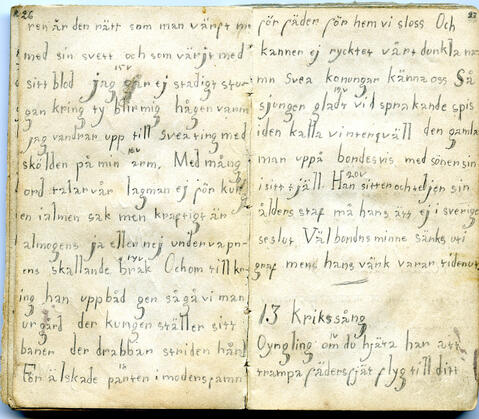 26
ren är den rätt som man värft me
med sin svett och som värjt med
15v
sitt blod jag går ej stadigt stur
gan kring ty blir mig hågen varm
jag vandrar upp till Svea ting med
16v
skölden på min arm. Med mång
ord talar vår lagman ej för kung
en i almen sak men kraftigt är
almogens ja eller nej under vapn
17v
ens skallande brak Och om till kr
ing han uppbåd gen så gå vi man
ur gård der kungen ställer sitt
baner der drabbar striden hård
18
För älskade panten i moders famn
27
för fäder för hem vi sloss Och
kanner ej ryktet vårt dunkla na
mn Svea konungar känna oss Så
19v
sjungen gladt vid sprakande spis
i den kalla vintersqväll den gamla
man uppå bondesvis med söner sin
20v
i sitt tjäll. Han sitter och teljen sin
ålders staf må hans ätt ej i sverige
se slut Väl bondns minne sänks uti
graf mens hans värk varar tiden ut
13 Krikssång
1v
O yngling om du hjäta har att
trampa fäders fjät flyg till ditt